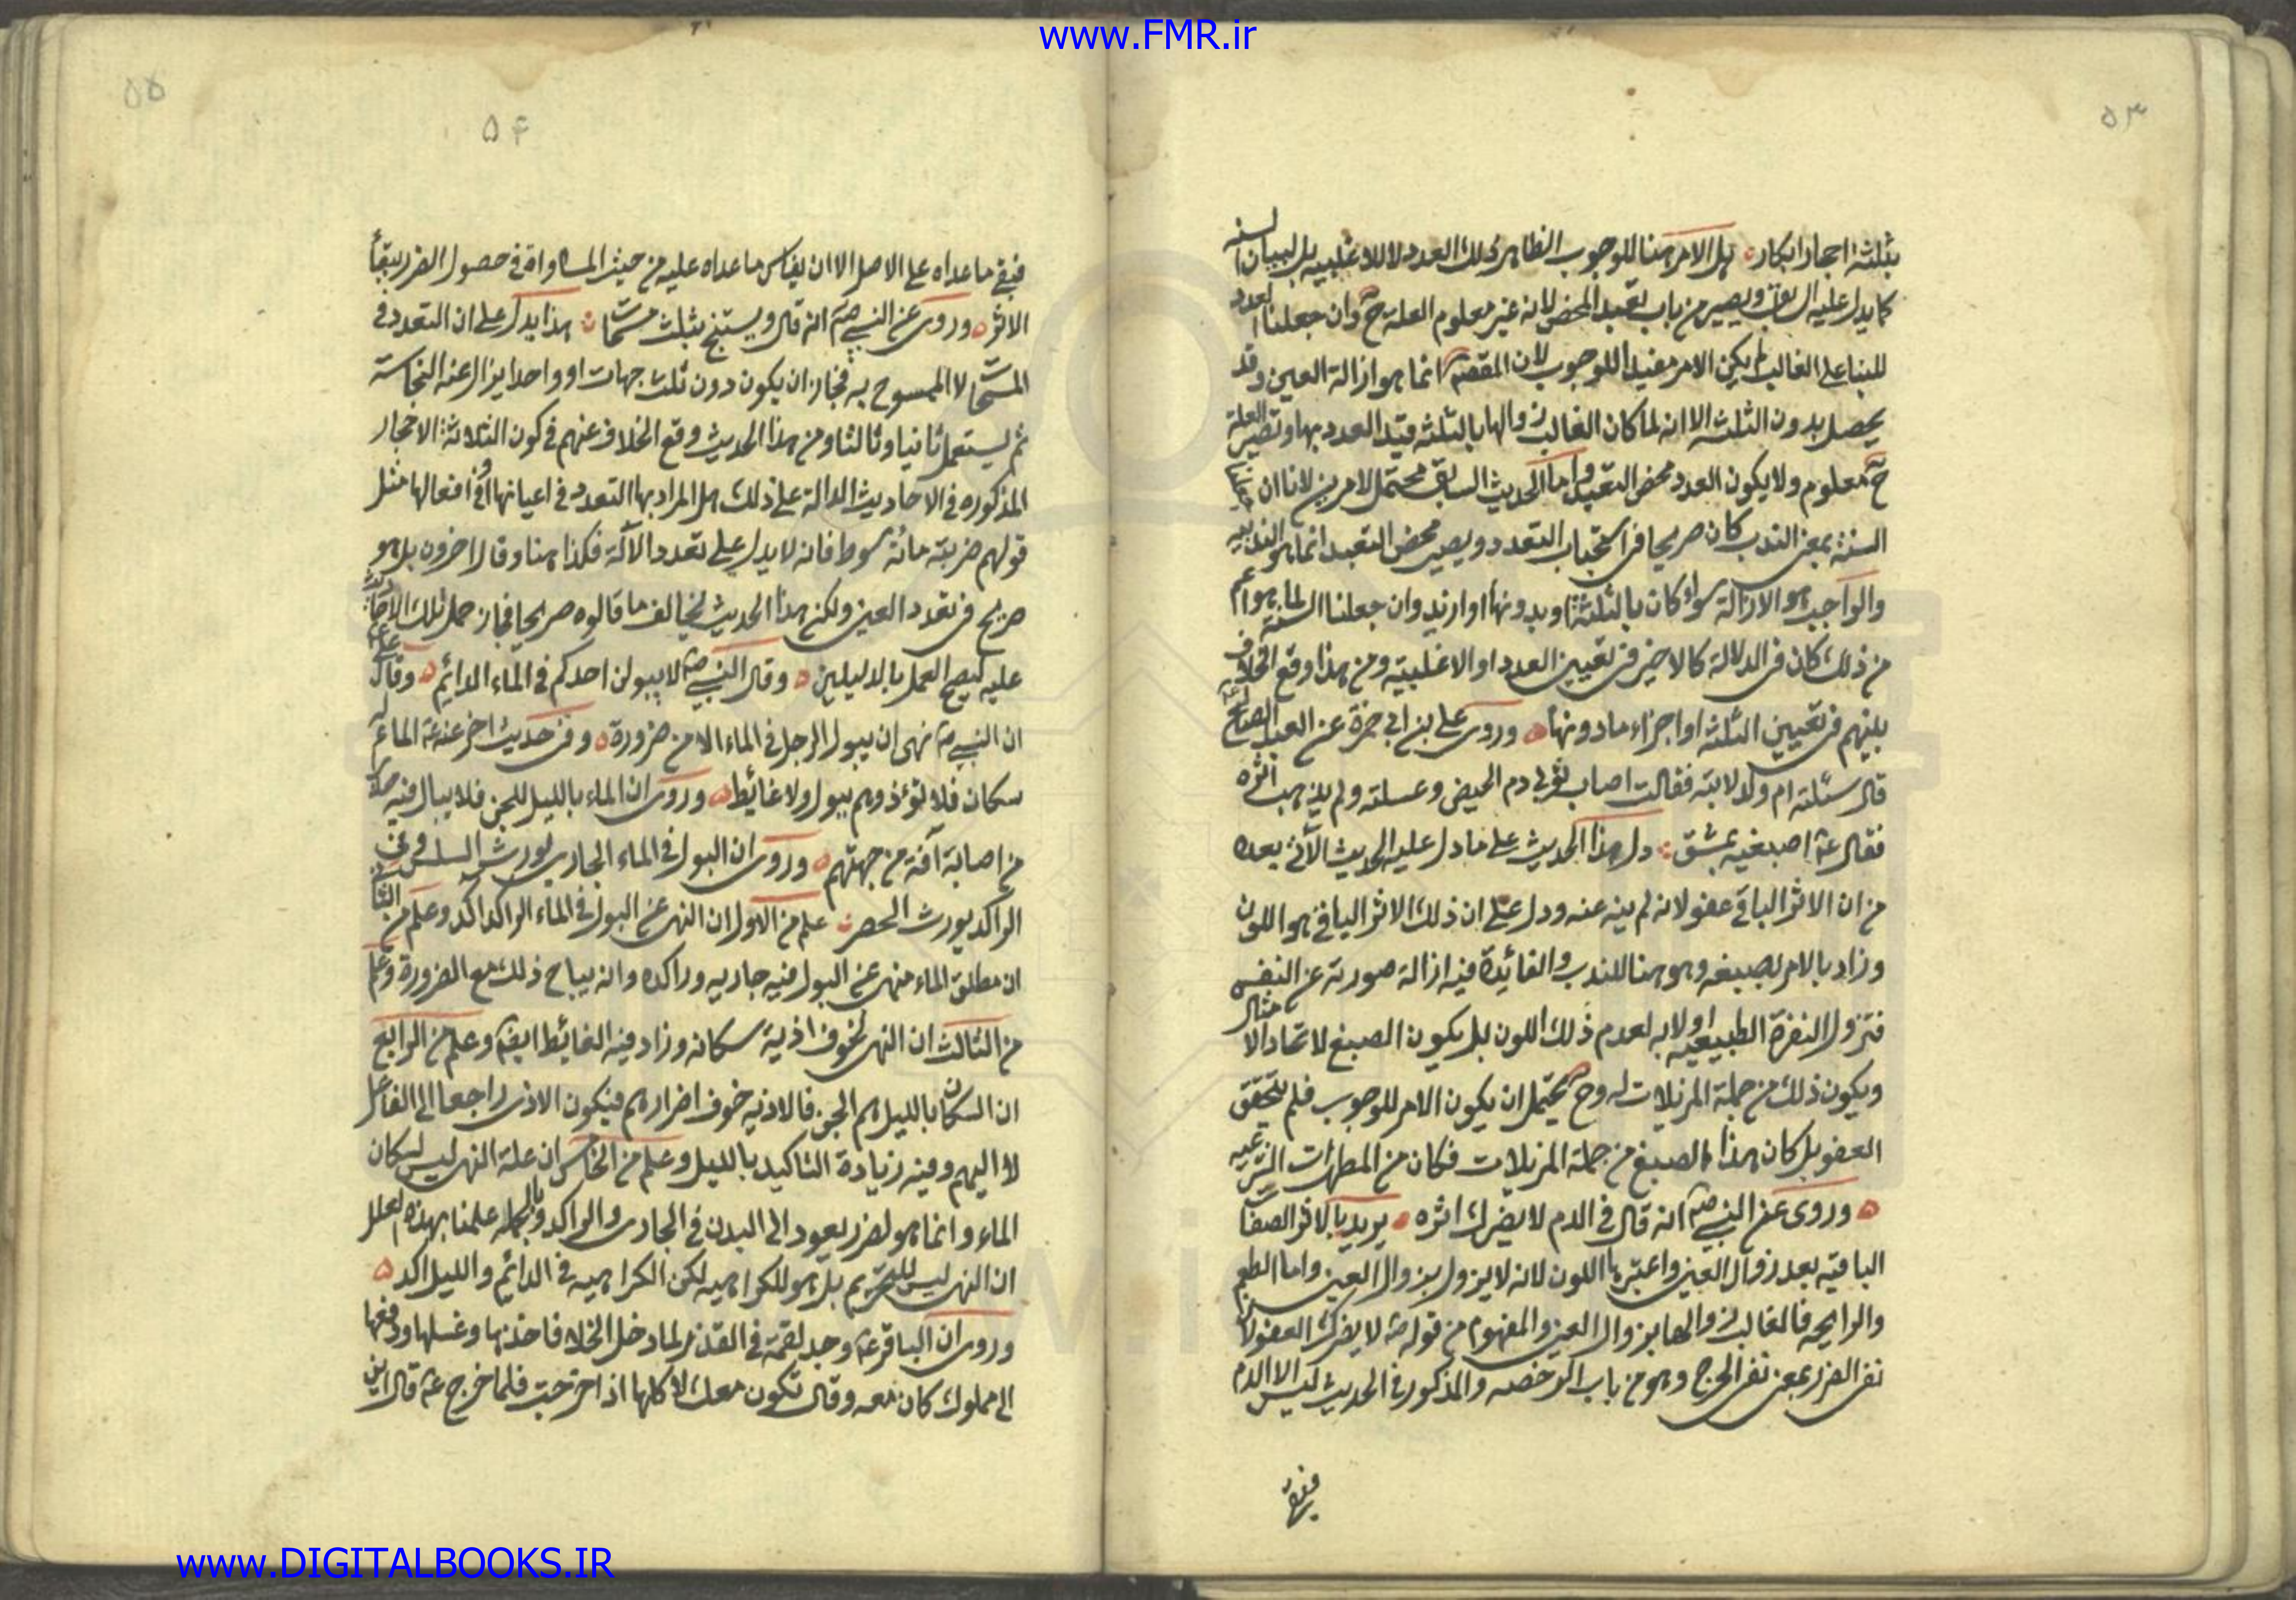 www.FMR.ir
۵۳
بثلثة احجار ابكار هل الامر هنا للوجوب الظاهر ذلك العدد لا للاغلبيه بل لبيان السنه
كما يدل عليه السابق ويصير من باب تعبد المحض لانه غير معلوم العلة ح وان جعلنا العدد
للبنا على الغالب لم يكن الامر مفيدا للوجوب لان المقصم انما هو ازالة العين وقد
يحصل بدون الثلثه الا انه لما كان الغالب زوالها بالثلثه قيد العدد بها وتصير العلة
ح معلوم ولا يكون العدد محض التعبد واما الحديث السابق محتمل الامرين لانا ان جعلنا
السنة بمعنى الندب كان صريحا فى استحباب التعدد ويصير محض التعبد انما هو الندبيه
والواجب هو الازالة سواء كان بالثلثة او بدونها او ازيد وان جعلنا السنة لما هو اعم
من ذلك كان فى الدلالة كالاخير فى تعيين العدد او الاغلبية ومن هذا وقع الخلاف
بينهم فى تعيين الثلثه او اجزاء مادونها وروى على بن ابى حمزة عن العبد الصالح
قال سئلته ام ولد لابيه فقالت اصاب ثوبى دم الحيض وغسلته ولم يذهب اثره
فقال ع اصبغيه بمشق دل هذا الحديث على ما دل عليه الحديث الآتى بعده
من ان الاثر الباقى عفو لانه لم ينه عنه ودل على ان ذلك الاثر الباقى هو اللون
وزاد بالامر بصبغه وهو هنا للندب والفائدة فيه ازالة صورته عن النفس
فتزول النفرة الطبيعيه اولا به لعدم ذلك اللون بل يكون الصبغ لا تحاد الا مثال
ويكون ذلك من جملة المزيلات له وح يحتمل ان يكون الامر للوجوب فلم يتحقق
العفو بل كان هذا الصبغ من جملة المزيلات فكان من المطهرات الشرعيه
وروى عن النبى صم انه قال فى الدم لا يضرك اثره يريد بالاثر الصفات
الباقيه بعد زوال العين واعتبرها اللون لانه لا يزول بزوال العين واما الطعم
والرايحه فالغالب زوالها بزوال العين والمفهوم من قوله ص لا يضرك العفو لان
نفى الضرر بمعنى نفى الحرج وهو من باب الرخصه والمذكور فى الحديث ليس الا الدم
فيبقى
۵۵
۵۴
فيبقى ما عداه على الاصل الا ان يقاس ما عداه عليه من حيث المساواة فى حصول الضرر ببقاء
الاثر وروى عن النبى صم انه قال ويستنج بثلث مسحات هذا يدل على ان التعدد فى
المسحات لا الممسوح به فجاز ان يكون دون ثلث جهات او واحدا يزال عنه النجاسة
ثم يستعمل ثانيا وثالثا ومن هذا الحديث وقع الخلاف عنهم فى كون الثلاثة الاحجار
المذكوره فى الاحاديث الدالة على ذلك هل المراد بها التعدد فى اعيانها او فى افعالها مثل
قولهم ضربته مائة سوط فانه لا يدل على تعدد الآلة فكذا هنا وقال اخرون بل هو
صريح فى تعدد العين ولكن هذا الحديث يخالف ما قالوه صريحا فجاز حمل تلك الاحاديث
عليه ليصح العمل بالدليلين وقال النبى ص لا يبولن احدكم فى الماء الدائم وقال على ع
ان النبى ص نهى ان يبول الرجل فى الماء الا من ضرورة وفى حديث اخر عنه ع الماء له
سكان فلا تؤذوهم ببول ولا غائط وروى ان الماء بالليل للجن فلا يبال فيه حذرا
من اصابة آفة من جهتهم وروى ان البول فى الماء الجارى يورث السلس وفى
الراكد يورث الحصر علم من الاول ان النهى عن البول فى الماء الراكد اكد وعلم من الثانى
ان مطلق الماء منهى عن البول فيه جاريه وراكده وانه يباح ذلك مع الضرورة وعلم
من الثالث ان النهى لخوف اذية سكانه وزاد فيه الغائط ايضا وعلم من الرابع
ان السكان بالليل هم الجن فالاذيه خوف اضرارهم فيكون الاذى راجعا الى الفاعل
لا اليهم وفيه زيادة التاكيد بالليل وعلم من الخامس ان علة النهى ليس لسكان
الماء وانما هو لضرر يعود الى البدن فى الجارى والراكد وبالجمله علمنا بهذه العلل
ان النهى ليس للتحريم بل هو للكراهيه لكن الكراهيه فى الدائم والليل اكد
وروى ان الباقر ع وجد لقمة فى القذر لما دخل الخلا فاخذها وغسلها ودفعها
الى مملوك كان معه وقال تكون معك لاكلها اذا خرجت فلما خرج ع قال اين
www.DIGITALBOOKS.IR